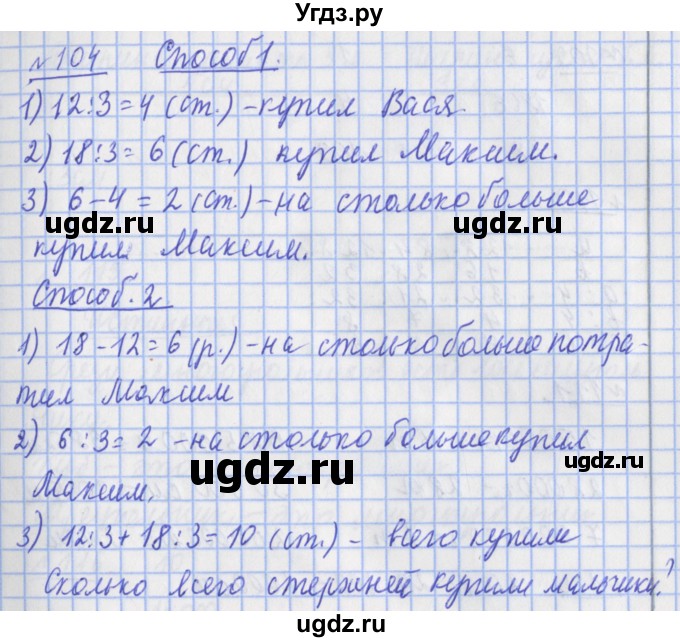 Угдз.ру
№104 Способ 1.
1) 12:3=4 (ст.) -купил Вася.
2) 18:3= 6 (ст.) купил Максим.
3) 6-4 = 2 (ст.) -на столько больше
ugdz.ru ugdz.ru
купил Максим.
Способ. 2
1) 18-12=6 (р.) -на столько больше потра-
тил Максим
2) 6:3=2 -на столько больше купил
ugdz.ru ugdz.ru
Максим.
3) 12:3+18:3=10 (ст.) - всего купили
Сколько всего стержней купили мальчики?
ugdz.ru ugdz.ru